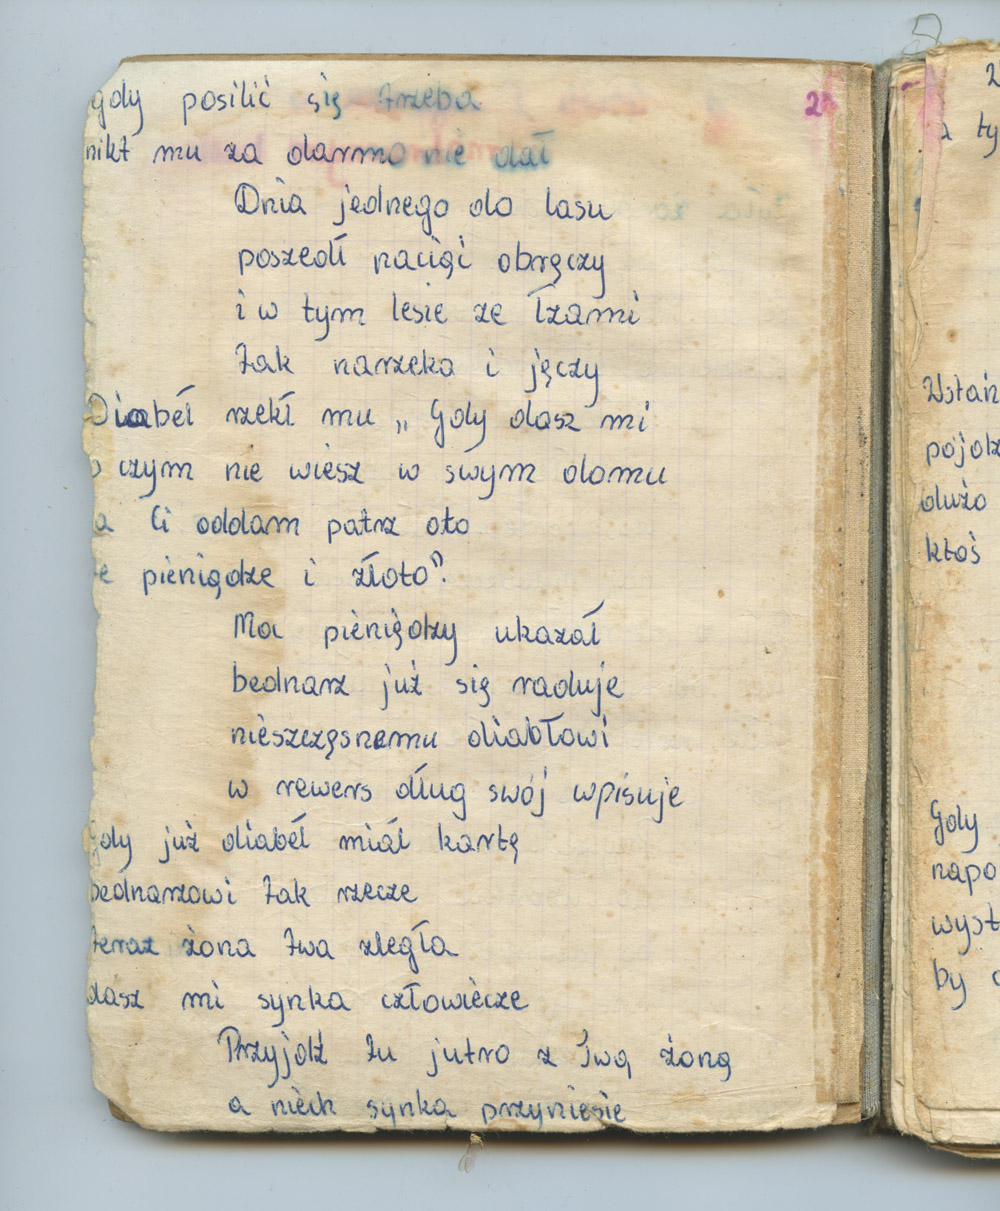 gdy posilić się trzeba
nikt mu za darmo nie dał
Dnia jednego do lasu
poszedł naciąć obręczy
i w tym lesie ze łzami
tak narzeka i jęczy
Diabeł rzekł mu „Gdy dasz mi
o czym nie wiesz w swym domu
ja Ci oddam patrz oto
te pieniądze i złoto”.
Moc pieniędzy ukazał
bednarz już się raduje
nieszczęsnemu diabłowi
w rewers dług swój wpisuje
Gdy już diabeł miał kartę
bednarzowi tak rzecze
teraz żona twa zległa
dasz mi synka człowiecze
Przyjdź tu jutro z Twą żoną
a niech synka przyniesie
2
a ty
Wstań
pojdz
dużo
ktoś
Gdy
napo
wyst
by